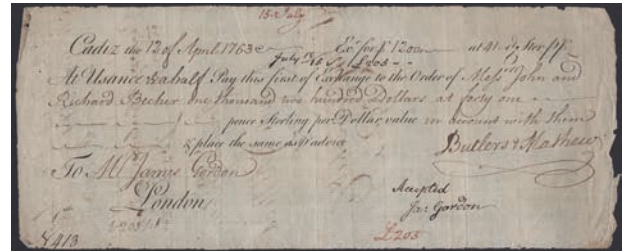 15 July
Cadiz the 12 of April 1763 Exc. for $ 1200 at 41 d Ster. pr $
July £205
At Usance & a half Pay this first of Exchange to the Order of Messrs John and
Richard Becher one thousand two hundred Dollars at forty one
pence Sterling per Dollar, value in account with them
& place the same as p advice
Butlers & Mathew
To Mr James Gordon
London
Accepted
Jas Gordon
£205